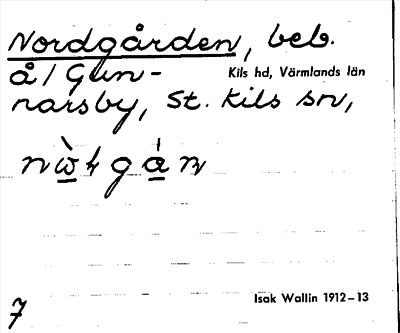 Nordgården, beb.
å/Gun-
Kils hd, Värmlands län
narsby, St. Kils sn,
Isak Wallin 1912–13
7